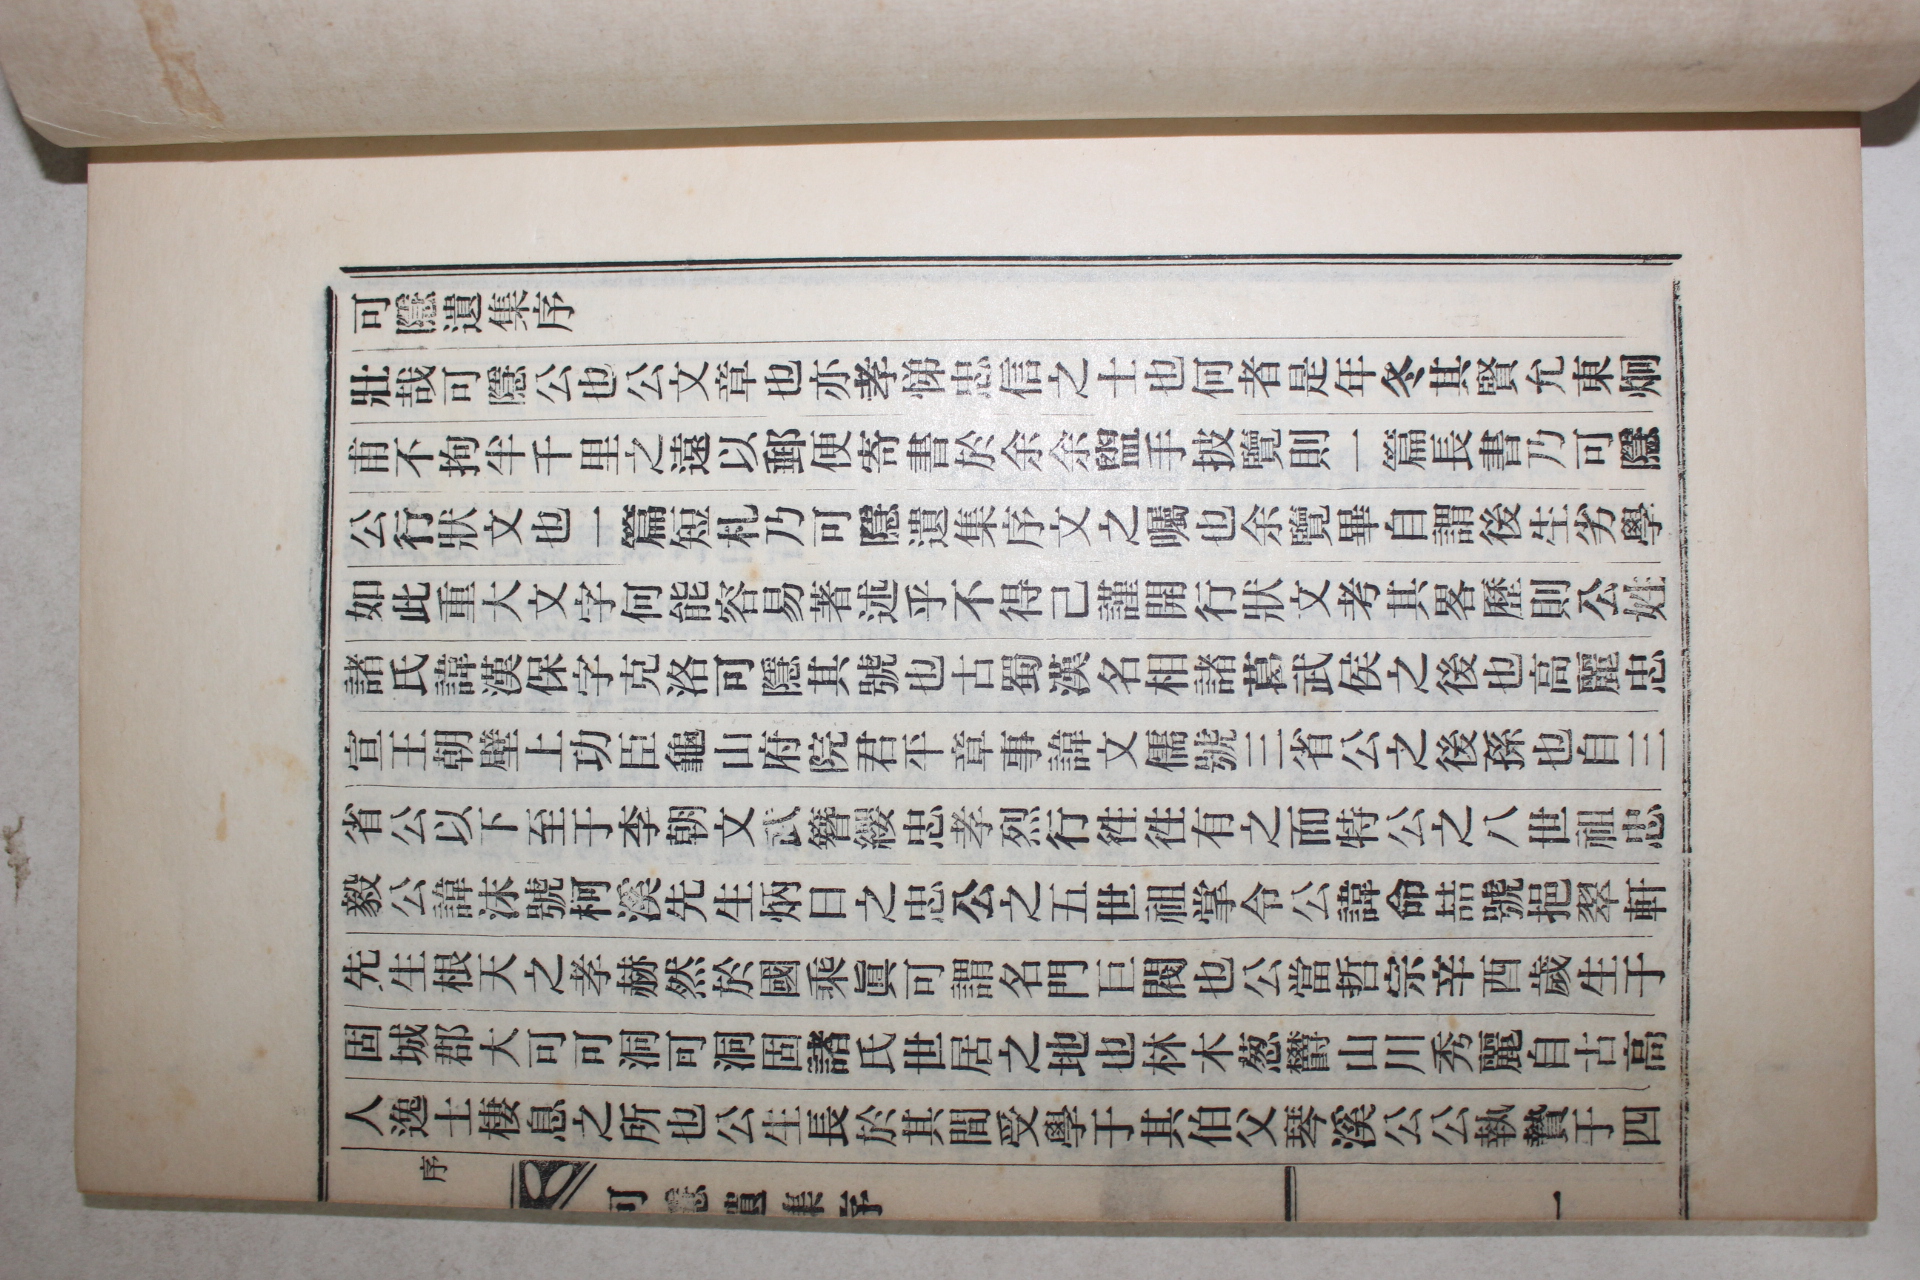 可隱遺集序
壯哉可隱公也公文章也亦孝悌忠信之士也何者是年冬其賢允東炯
甫不拘半千里之遠以郵便寄書於余余盥手披覽則一篇長書乃可隱
公行狀文也一篇短札乃可隱遺集序文之囑也余覽畢自謂後生劣學
如此重大文字何能容易著述乎不得己謹開行狀文考其畧歷則公姓
諸氏諱漢保字克洛可隱其號也古蜀漢名相諸葛武侯之後也高麗忠
宣王朝壁上功臣龜山府院君平章事諱文儒號三省公之後孫也自三
省公以下至于李朝文武簪纓忠孝烈行徃徃有之而特公之八世祖忠
毅公諱沫號柯溪先生炳日之忠公之五世祖掌令公諱命喆號挹翠軒
先生根天之孝赫然於國乘眞可謂名門巨閥也公當哲宗辛酉歲生于
固城郡大可可洞可洞固諸氏世居之地也林木葱欝山川秀麗自古高
人逸士棲息之所也公生長於其間受學于其伯父琴溪公公執贄于四
序
可隱遺集序
一